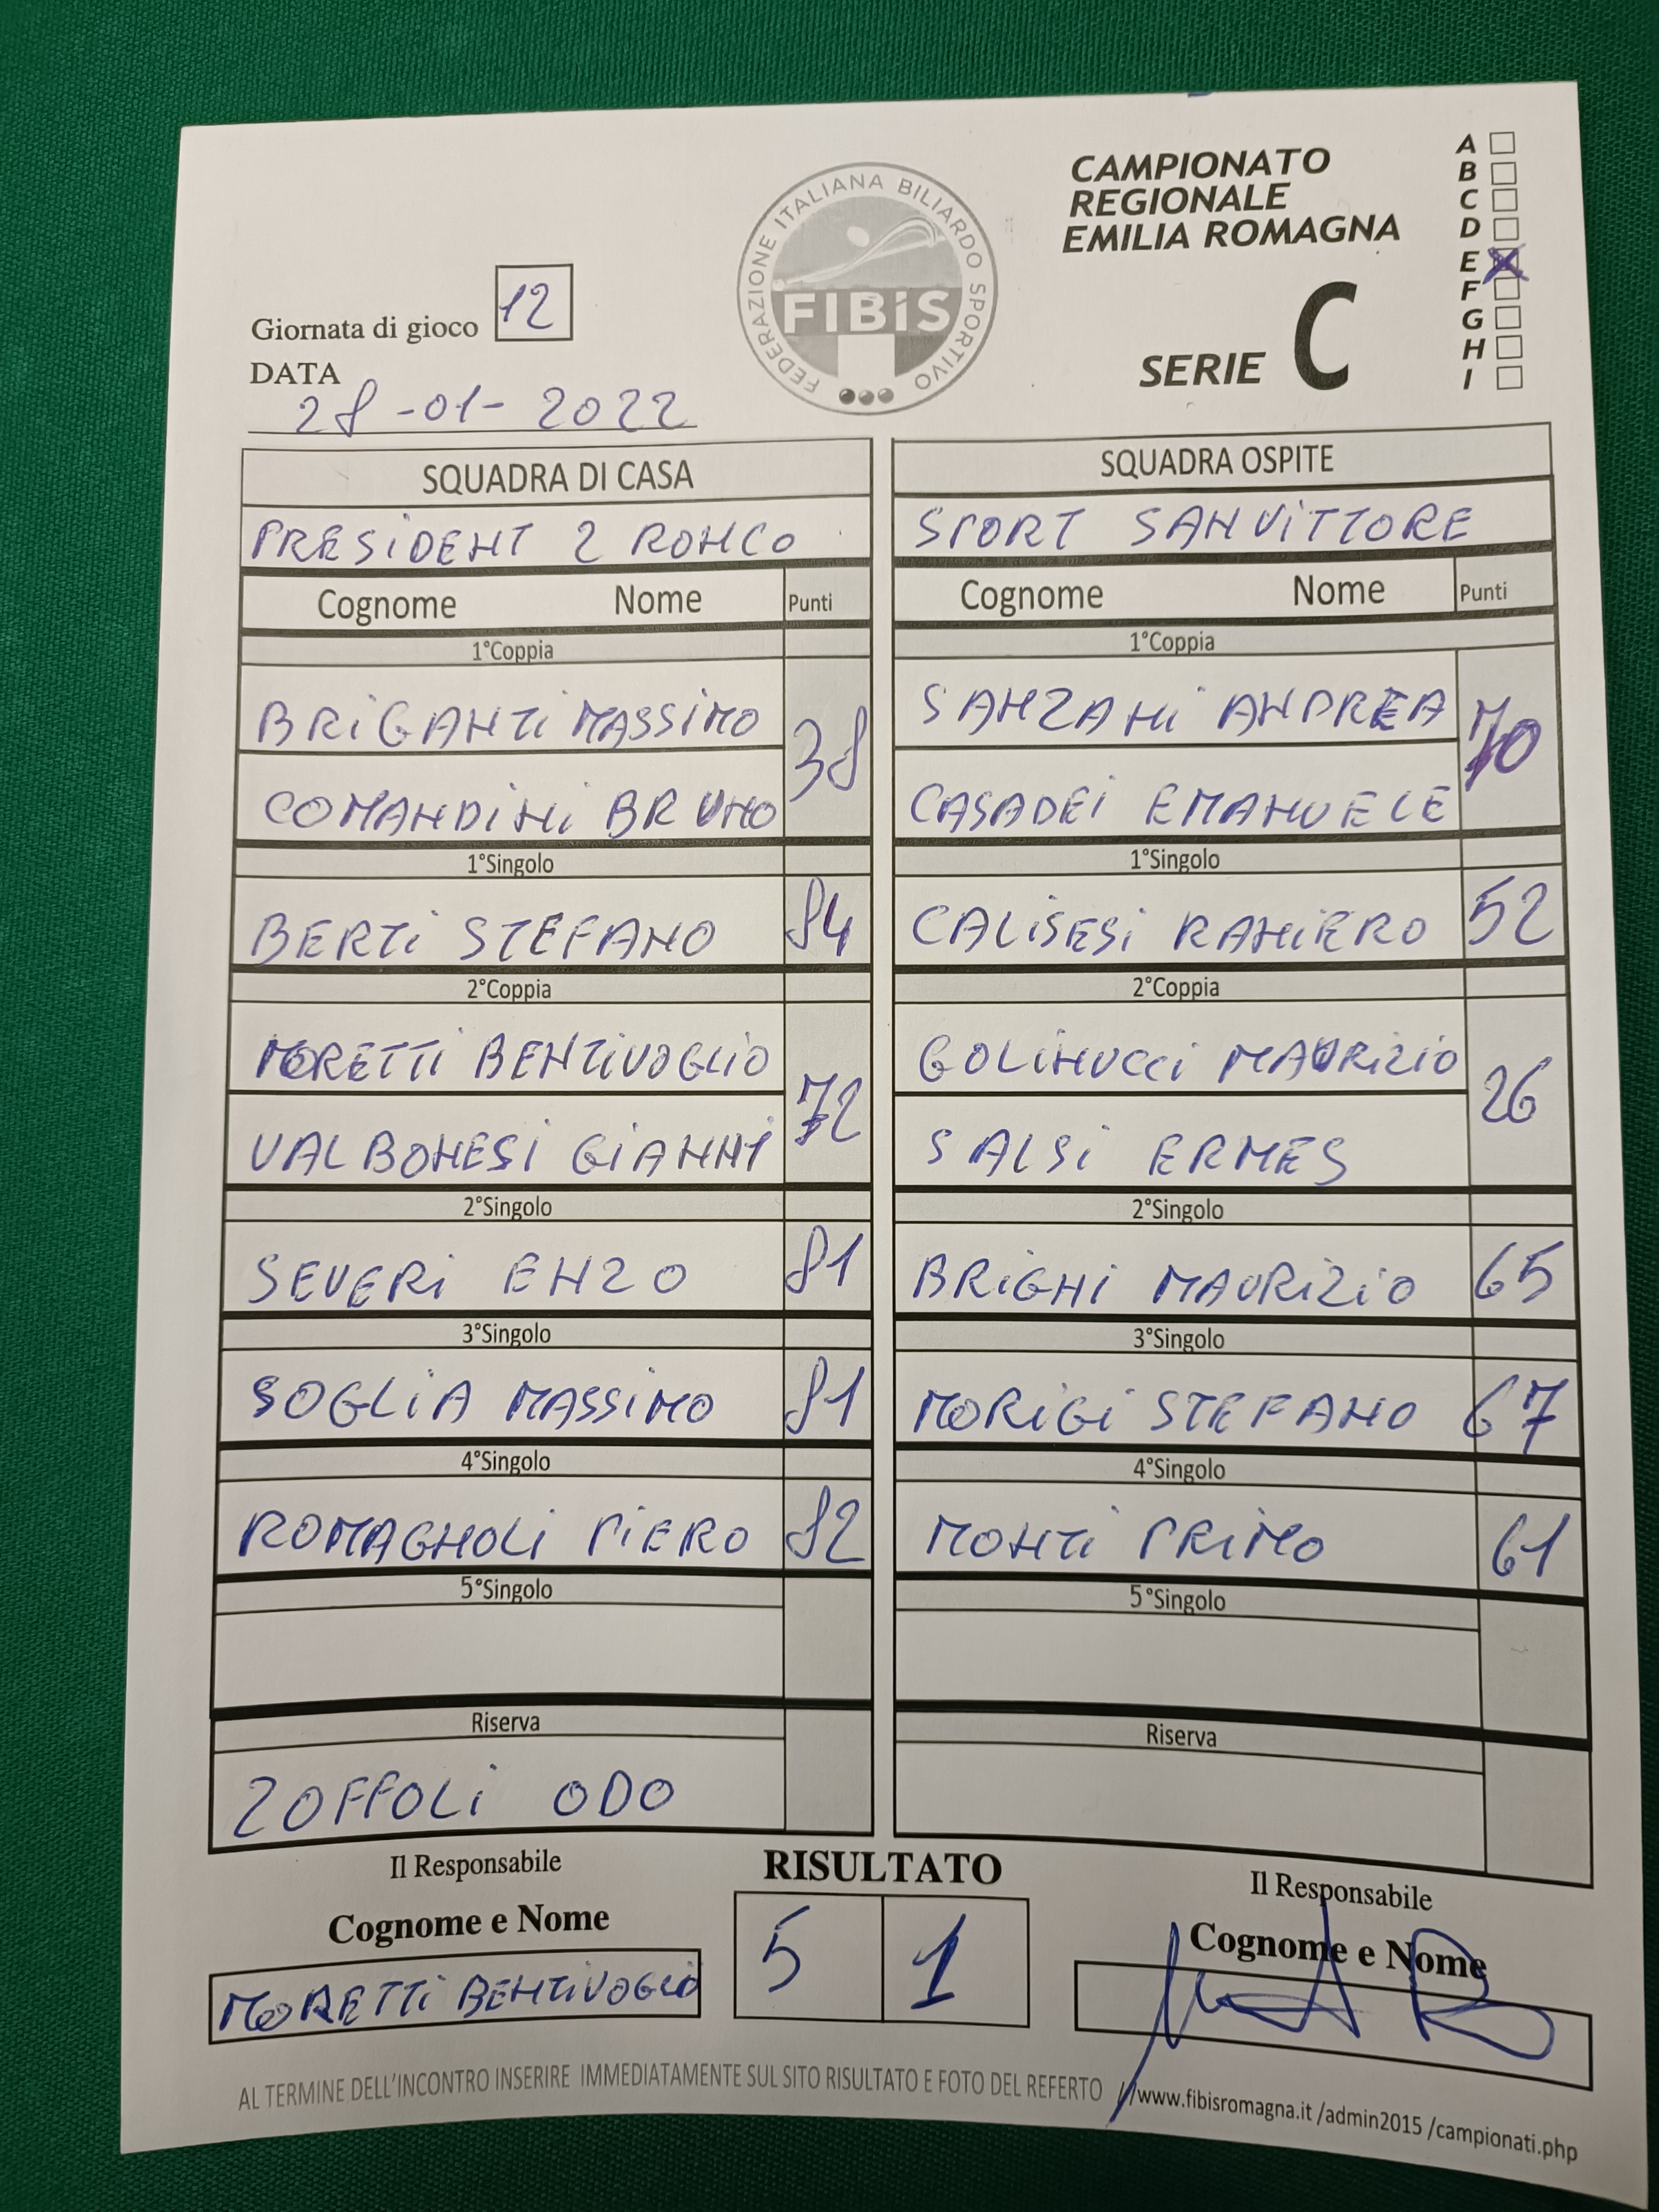 CAMPIONATO
REGIONALE
EMILIA ROMAGNA
SERIE C
A
B
C
D
E
F
G
H
I
FEDERAZIONE ITALIANA BILIARDO SPORTIVO
FIBiS
Giornata di gioco 12
DATA
28-01-2022
SQUADRA DI CASA
PRESIDENT 2 RONCO
Cognome Nome Punti
1°Coppia
BRIGANTI MASSIMO
38
COMANDINI BRUNO
1°Singolo
BERTI STEFANO 84
2°Coppia
MORETTI BENTIVOGLIO
72
VALBONESI GIANNI
2°Singolo
SEVERI ENZO 81
3°Singolo
SOGLIA MASSIMO 81
4°Singolo
ROMAGNOLI PIERO 82
5°Singolo
Riserva
ZOFFOLI ODO
SQUADRA OSPITE
SPORT SANVITTORE
Cognome Nome Punti
1°Coppia
SANZANI ANDREA
70
CASADEI EMANUELE
1°Singolo
CALISESI RANIERO 52
2°Coppia
GOLINUCCI MAURIZIO
26
SALSI ERMES
2°Singolo
BRIGHI MAURIZIO 65
3°Singolo
MORIGI STEFANO 67
4°Singolo
MONTI PRIMO 61
5°Singolo
Riserva
Il Responsabile
Cognome e Nome
MORETTI BENTIVOGLIO
RISULTATO
5 1
Il Responsabile
Cognome e Nome
AL TERMINE DELL'INCONTRO INSERIRE IMMEDIATAMENTE SUL SITO RISULTATO E FOTO DEL REFERTO //www.fibisromagna.it /admin2015 /campionati.php